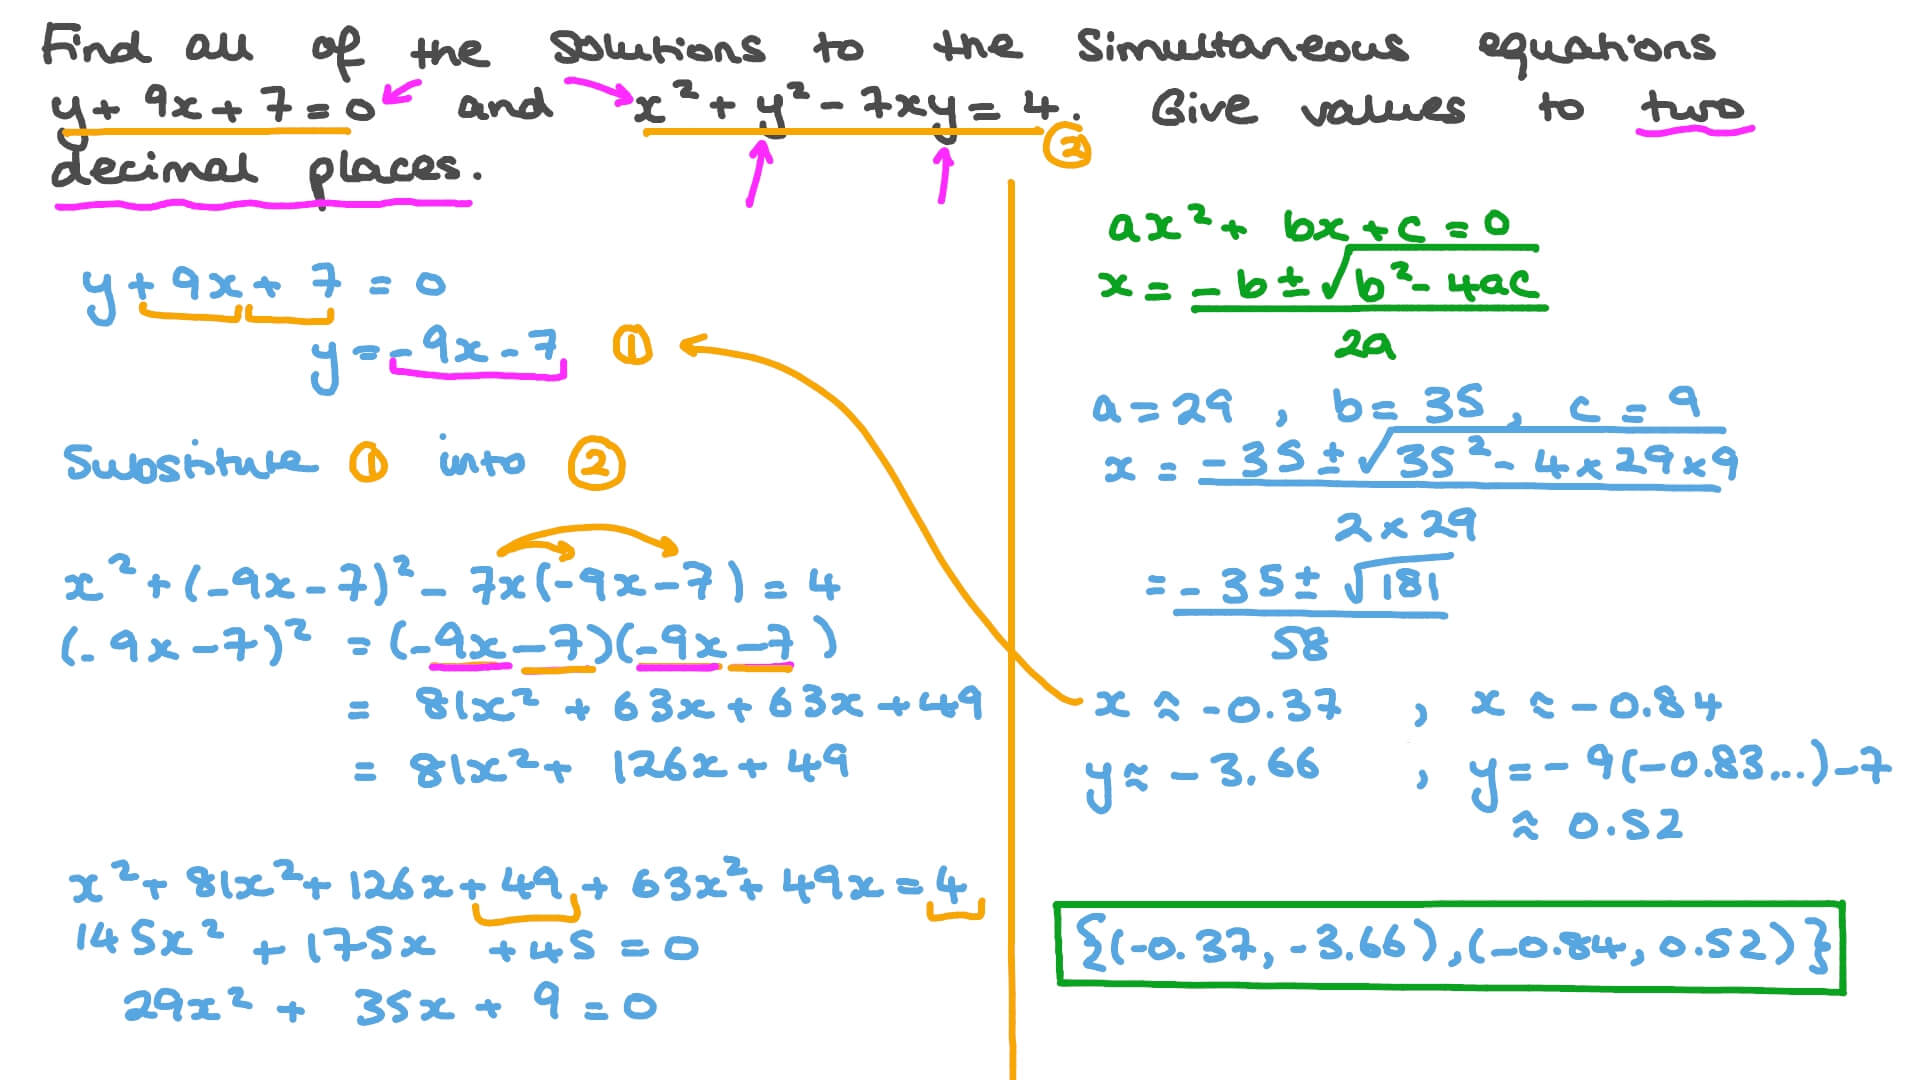 Find all of the solutions to the simultaneous equations
y + 9x + 7 = 0 and x² + y² - 7xy = 4. Give values to two
②
decimal places.
y + 9x + 7 = 0
y = -9x - 7 ①
Substitute ① into ②
x² + (-9x - 7)² - 7x(-9x - 7) = 4
(-9x - 7)² = (-9x - 7)(-9x - 7)
= 81x² + 63x + 63x + 49
= 81x² + 126x + 49
x² + 81x² + 126x + 49 + 63x² + 49x = 4
145x² + 175x + 45 = 0
29x² + 35x + 9 = 0
ax² + bx + c = 0
x = -b ± √b² - 4ac
2a
a = 29 , b = 35 , c = 9
x = -35 ± √35² - 4 × 29 × 9
2 × 29
= -35 ± √181
58
x ≈ -0.37 , x ≈ -0.84
y ≈ -3.66 , y = -9(-0.83...) - 7
≈ 0.52
{(-0.37, -3.66), (-0.84, 0.52)}